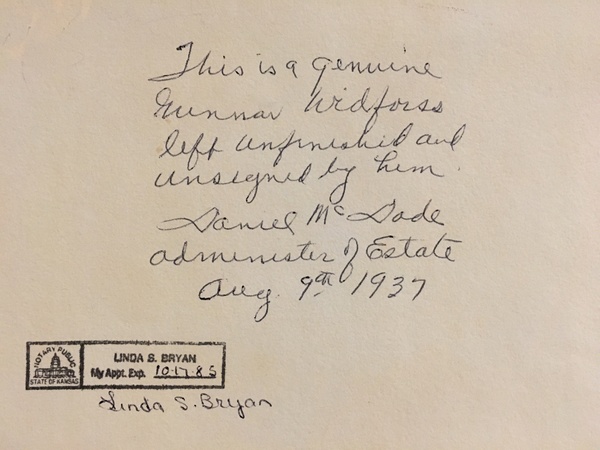 This is a genuine
Gunnar Widforss
left unfinished and
unsigned by him
Daniel McDade
administer of Estate
Aug. 9th 1937
NOTARY PUBLIC
STATE OF KANSAS
LINDA S. BRYAN
My Appt. Exp. 10-17-85
Linda S. Bryan